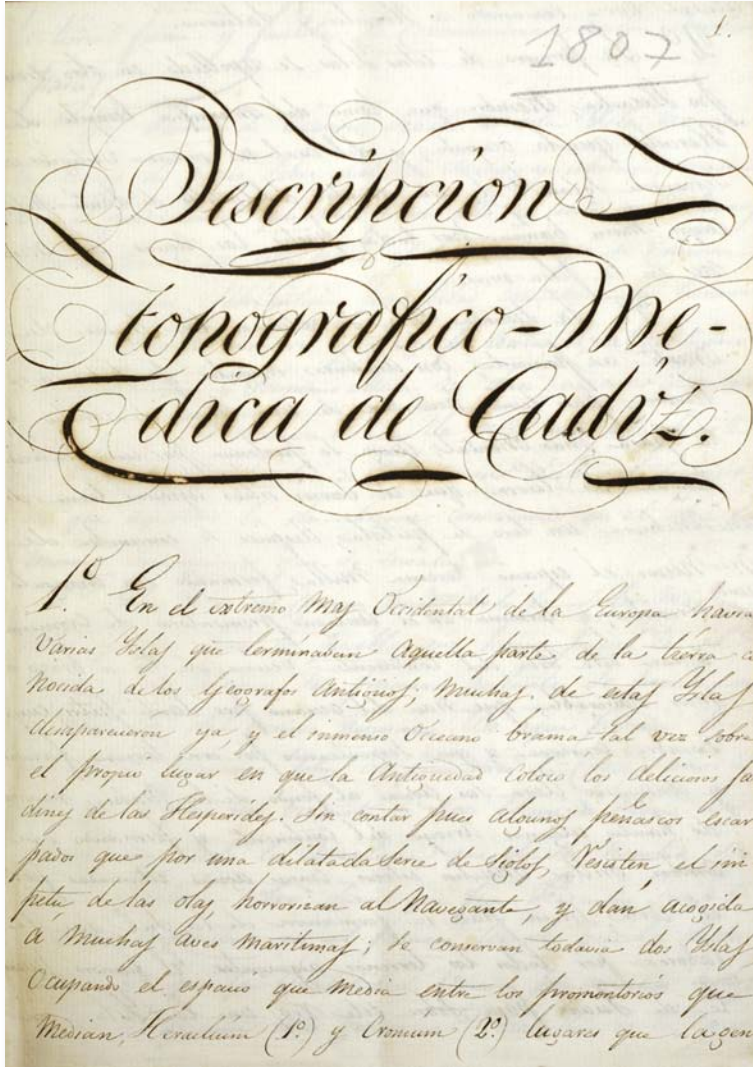 1.
1807
Descripcion
topografico-Me-
dica de Cadiz.
1º En el extremo mas Occidental de la Europa havia
Varias Yslas que terminaban aquella parte de la tierra co
nocida de los Geografos antiguos; muchas de estas Yslas
desaparecieron ya, y el inmenso Occeano brama tal vez sobre
el propio lugar en que la Antiguedad coloco los deliciosos Jar
dines de las Hesperides. Sin contar pues algunos peñascos escar
pados que por una dilatada Serie de Siglos, Resisten el im
petu de las olas, horrorizan al Navegante, y dán acogida
á muchas aves maritimas; se conservan todavia dos Yslas
Ocupando el espacio que media entre los promontorios que
Median, Heraclium (1º) y Cronium (2º) lugares que la gen